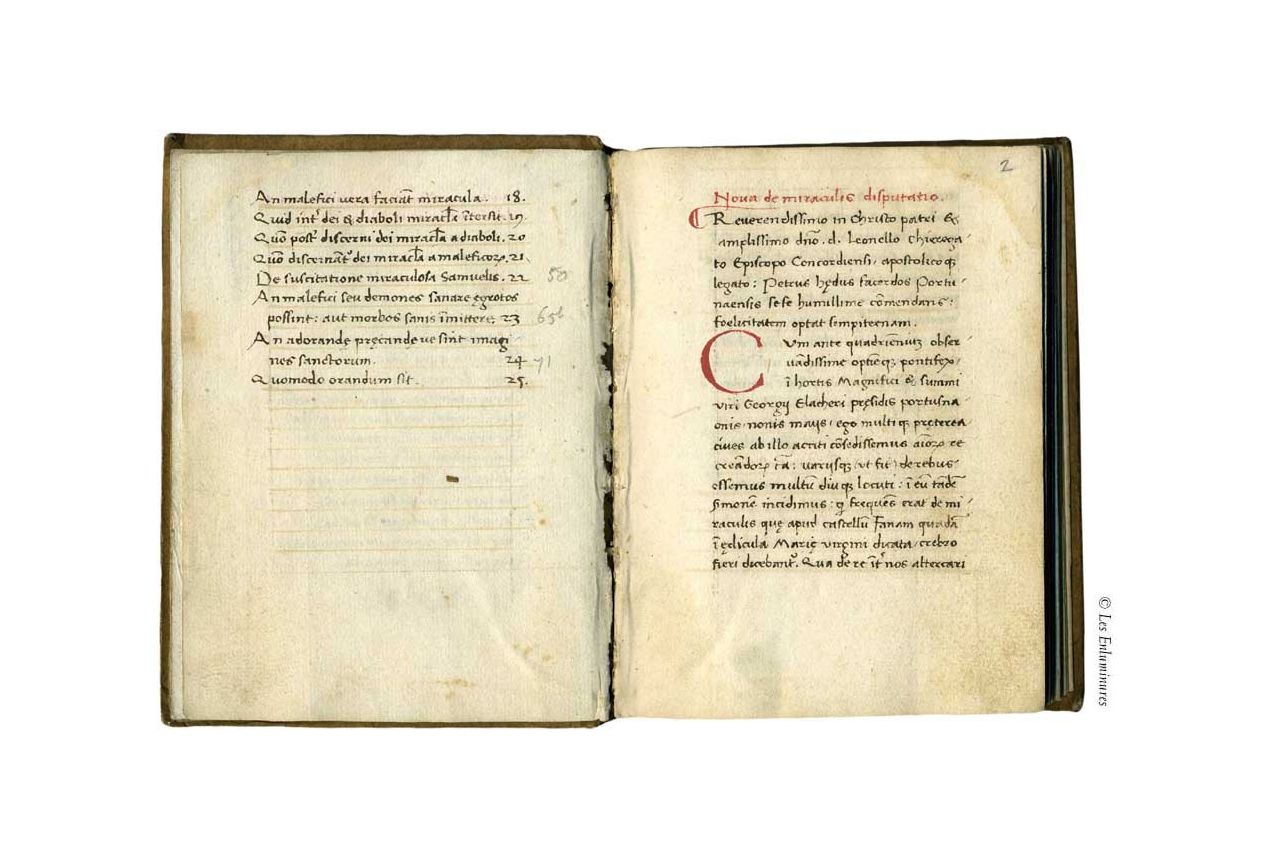 An malefici vera faciāt miracula. 18.
Quid intˀ dei & diaboli miracl̄a īterſit. 19.
Quō poſſˀ diſcerni dei miracl̄a a diaboli. 20
Quō diſcernātˀ dei miracl̄a a maleficoꝝ. 21.
De ſuſcitatione miraculoſa Samuelis. 22 58
An malefici ſeu demones ſanare ęgrotos
poſſint: aut morbos ſanis īmittere. 23 65b
An adorande pręcandę ve ſint imagi
nes ſanctorum. 24 71
Quomodo orandum ſit. 25.
2
Noua de miraculis diſputatio.
Reuerendiſſimo in Chriſto patri &
ampliſſimo dn̄o. d. Leonello Chierega
to Epiſcopo Concordienſi, apoſtolicoq;
legato: Petrus hędus ſacerdos Portu
naenſis ſeſe humillime cōmendans:
foelicitatem optat ſempiternam.
Cum ante quadrieniuꝫ obſer
uādiſſime optieq; pontifex,
ī hortis Magnifici & ſummi
viri Georgij Elacheri pręſidis portusna
onis, nonis maijs, ego multiq; pręterea
ciues ab illo acciti cōſediſſemus aīoꝝ re
creādoꝝ cā: varijsq; (vt fit) de rebus
eſſemus multū diuq; locuti: ī eū tādē
ſimonē incidimus: q frequēs erat de mi
raculis quę apud caſtellū Fanam quadā
ī ędicula Marię virgini dicata, crebro
fieri dicebantˀ. Qua de re īt nos altercari
© Les Enluminures